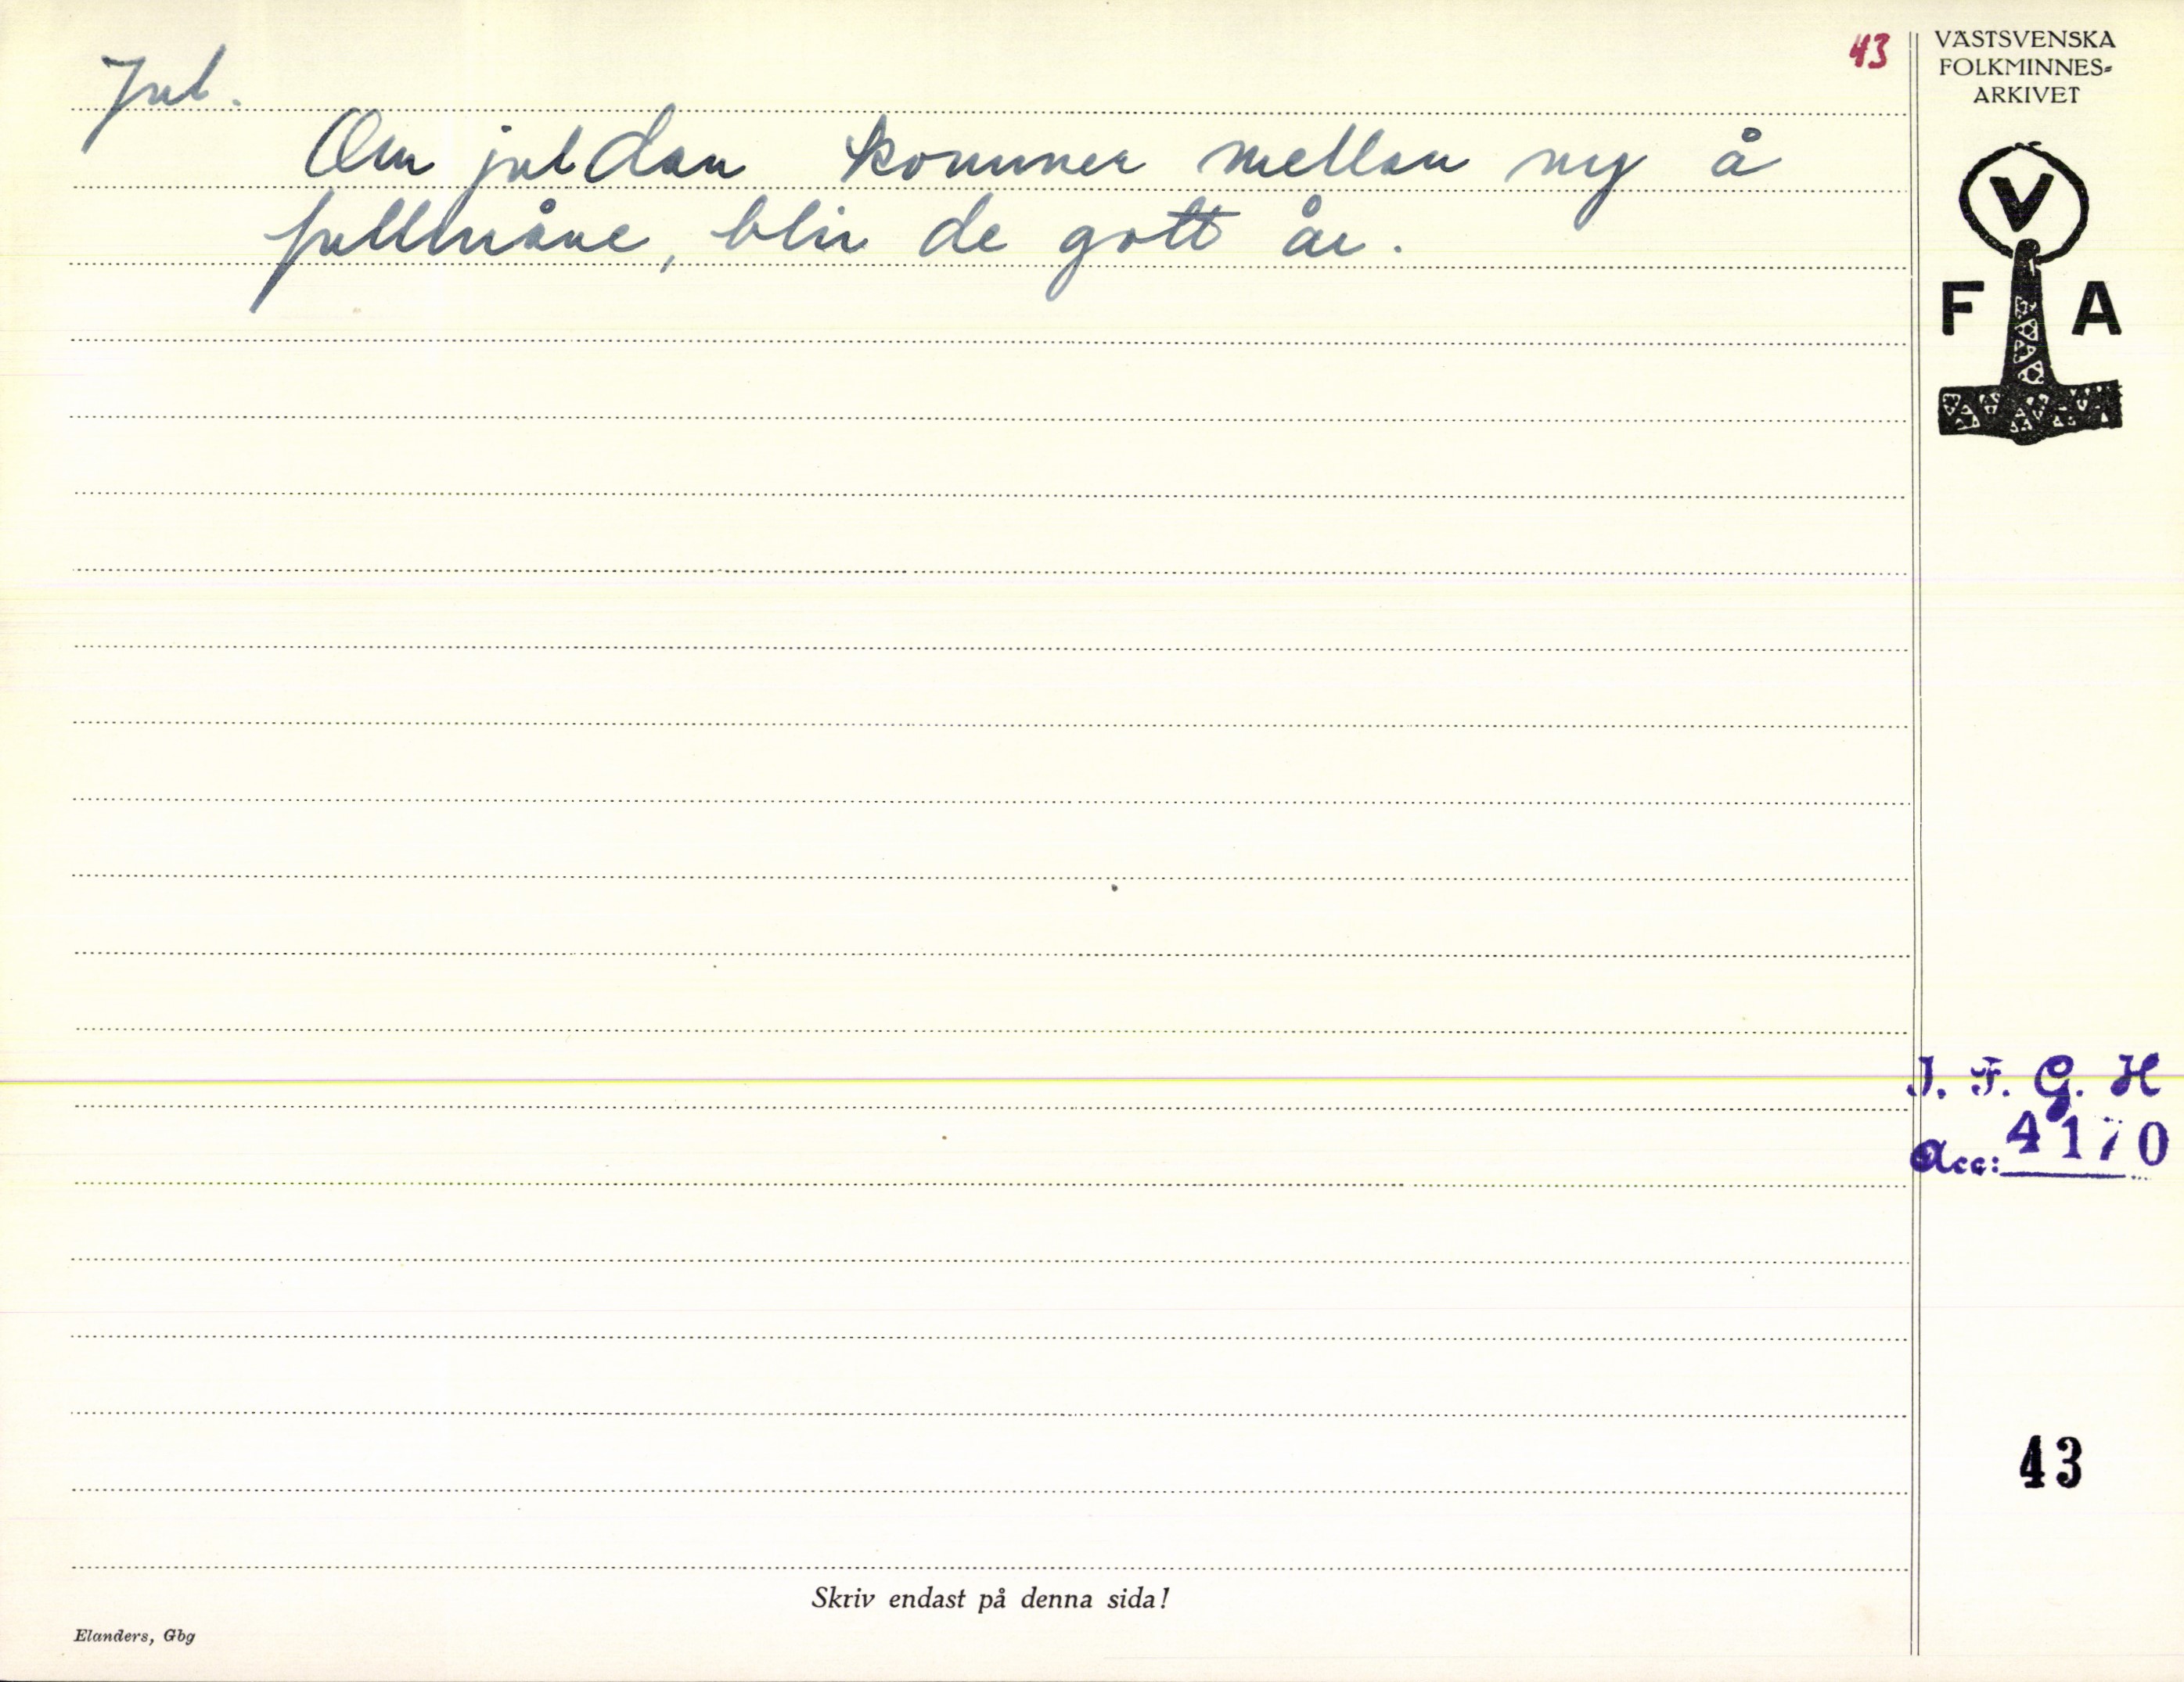 Jul.
43
Om juldan kommer mellan ny å
fullmåne, blir de gott år.
VÄSTSVENSKA
FOLKMINNES-
ARKIVET
V
F A
I. F. G. H
Acc: 4170
43
Skriv endast på denna sida!
Elanders, Gbg